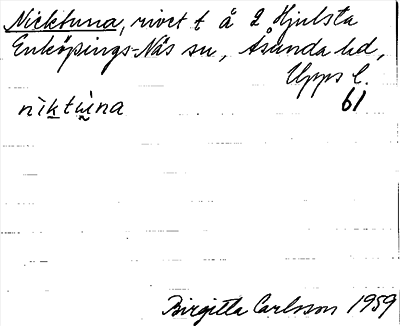 Nicktuna, rivet t å 2 Hjulsta
Enköpings-Näs sn, Åsunda hd,
Upps l.
nìk̲tṵ̇na 61
Birgitta Carlsson 1959